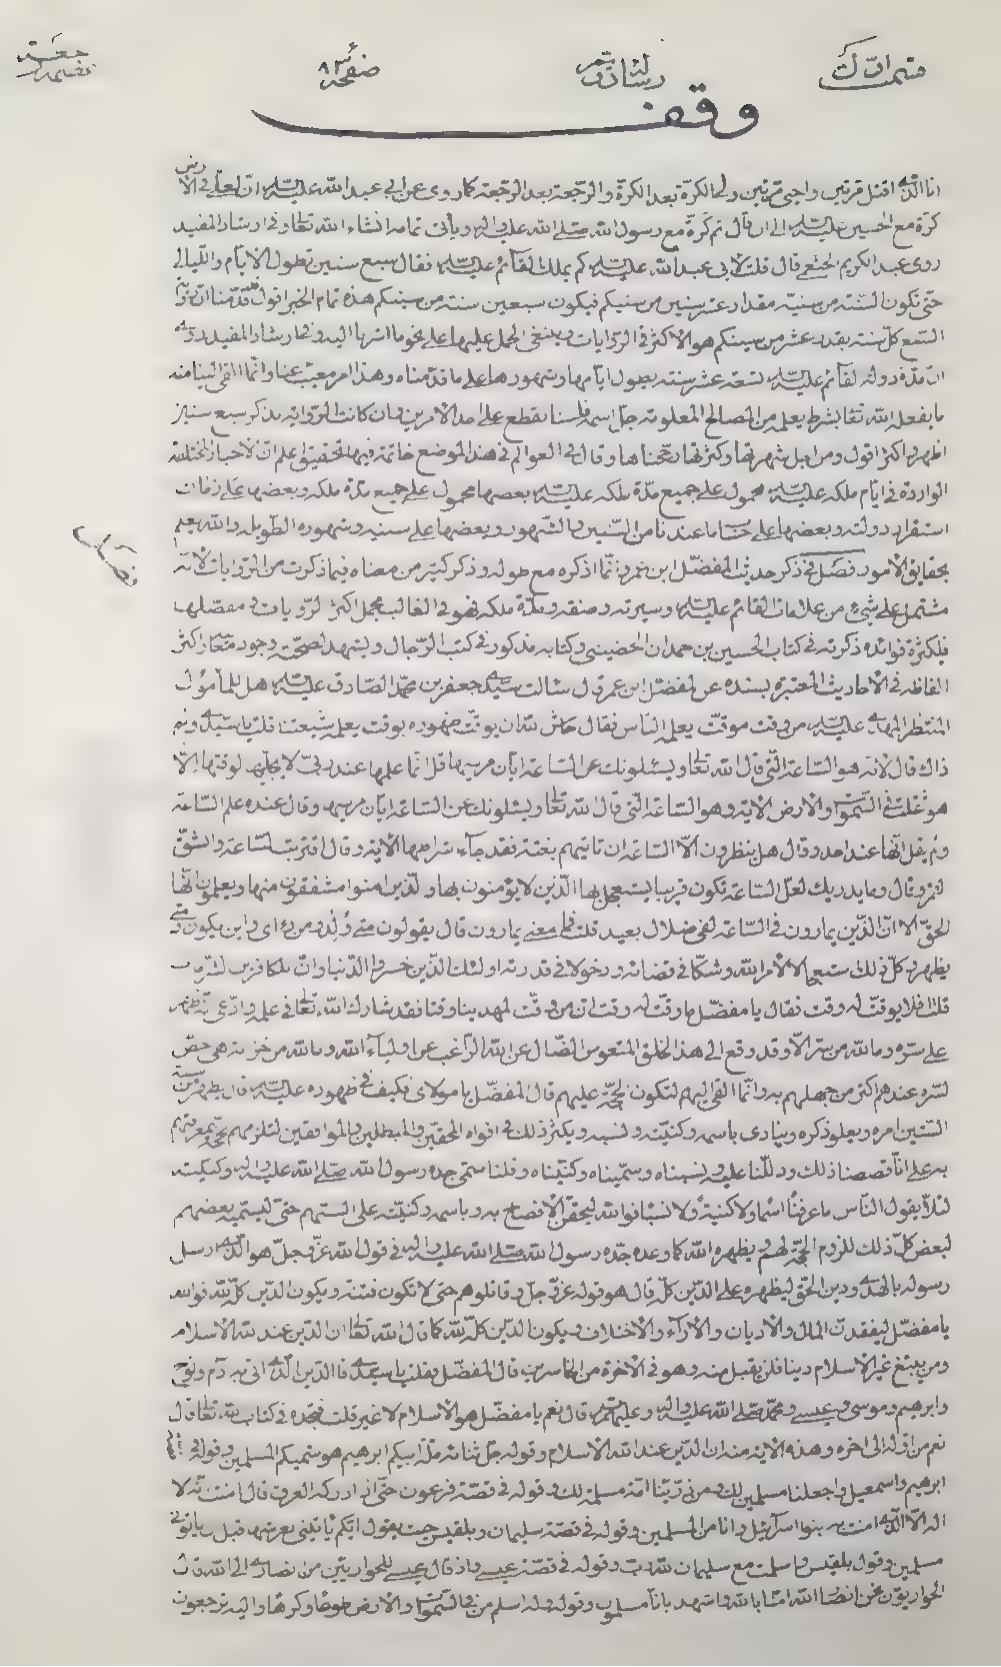 قسمت اول رسالة رجعت صفحة ٨٣
وقف
انا الذى اقتل مرتين واحيى مرتين ولى الكرّة بعد الكرّة والرّجعة بعد الرّجعة كما روى عن ابى عبد الله عليه السلام انّ لعلى فى الارض
كرّة مع الحسين عليه السلام الى ان قال ثم كرّة مع رسول الله صلى الله عليه واله وياتى تمامه انشاء الله تعالى وفى ارشاد المفيد
روى عبد الكريم الخثعمى قال قلت لابى عبد الله عليه السلام كم يملك القائم عليه السلام فقال سبع سنين تطول الايام والليالى
حتى تكون السّنة من سنيه مقدار عشر سنين من سنيكم فيكون سبعين سنة من سنيكم هذه تمام الخبر اقول قد قدّمنا انّ
السّبع كلّ سنة بقدر عشر من سنيكم هو الاكثر فى الرّوايات وينبغى الحمل عليها على نحو ما اشرنا اليه وفى ارشاد المفيد روى
انّ مدّة دولة القائم عليه السلام تسعة عشر سنة يطول ايامها وشهورها على ما قدّمناه وهذا امر مغيّب عنا وانّما القى الينا منه
ما يفعله الله تعالى بشرط يعلمه من المصالح المعلومة جلّ اسمه فلسنا نقطع على احد الامرين وان كانت الرّواية بذكر سبع سنين
اظهر واكثر اقول ومن اجل شهرتها وكثرتها رجّحناها وقال فى العوالم فى هذا الموضع خاتمة فيها تحقيق اعلم انّ الاخبار المختلفة
الواردة فى ايام ملكه عليه السلام محمول على جميع مدّة ملكه عليه السلام بعضها محمول على جميع مدّة ملكه وبعضها على زمان
استقرار دولته وبعضها على حساب ما عندنا من السّنين والشّهور وبعضها على سنيه وشهوره الطّويلة والله يعلم
بحقايق الامور فصل فى ذكر حديث المفضّل ابن عمر وانّما اذكره مع طوله وذكر كثير من معناه فيما ذكرت من الرّوايات لانّه
مشتمل على شىء من علامات القائم عليه السلام وسيرته وصفته ومدّة ملكه فهو فى الغالب مجمل اكثر الرّوايات ومفصّلها
فلكثرة فوائده ذكرته فى كتاب الحسين بن حمدان الحضينى وكتابه مذكور فى كتب الرّجال ويشهد لصحّته وجود معناه واكثر
الفاظه فى الاحاديث المعتبرة بسنده عن المفضّل ابن عمر قال سئالت سيّدى جعفر بن محمّد الصّادق عليه السلام هل للمأمول
المنتظر المهدى عليه السلام من وقت موقّت يعلمه النّاس فقال حاش لله ان يوقّت ظهوره بوقت يعلمه شيعتنا قلت يا سيّدى ولم
ذاك قال لانّه هو السّاعة الّتى قال الله تعالى ويسئلونك عن السّاعة ايّان مرسيها قل انّما علمها عند ربّى لا يجلّيها لوقتها الّا
هو ثقلت فى السّموات والارض الاية وهو السّاعة الّتى قال الله تعالى ويسئلونك عن السّاعة ايّان مرسيها وقال عنده علم السّاعة
ولم يقل انّها عند احد وقال هل ينظرون الّا السّاعة ان تاتيهم بغتة فقد جاء اشراطها الاية وقال اقتربت السّاعة وانشقّ
القمر وقال وما يدريك لعلّ السّاعة تكون قريبا يستعجل بها الّذين لا يؤمنون بها والّذين امنوا مشفقون منها ويعلمون انّها
الحقّ الا انّ الّذين يمارون فى السّاعة لفى ضلال بعيد قلت فما معنى يمارون قال يقولون متى وُلِد ومن رأى واين يكون ومتى
يظهر وكلّ ذلك استعجالا لامر الله وشكّا فى قضائه ودخولا فى قدرته اولئك الّذين خسروا الدّنيا وانّ للكافرين لشرّ مآب
قلت افلا يوقّت له وقت فقال يا مفضّل ما وقّت له وقت انّ من وقّت لمهدينا وقتا فقد شارك الله تعالى فى علمه وادّعى انّه ظهر
على سرّه وما لله من سرّ الّا وقد وقع الى هذا الخلق المتعوس الضّال عن الله الرّاغب عن اولياء الله وما لله من خزانة هى احصّ
لسرّه عندهم اكثر من جهلهم به وانّما القى اليهم لتكون الحجّة عليهم قال المفضّل يا مولاى فكيف فى ظهوره عليه السلام قال يظهر فى سنة
السّتين امره ويعلو ذكره وينادى باسمه وكنيته ونسبه ويكثر ذلك فى افواه المحقّين والمبطلين والموافقين لتلزمهم الحجّة بمعرفتهم
به على انّا قصصنا ذلك ودللنا عليه ونسبناه وسمّيناه وكنّيناه وقلنا سمىّ جدّه رسول الله صلى الله عليه واله وكنيّته
لئلّا يقول النّاس ما عرفنا اسما ولا كنية ولا نسبا فوالله ليحقّن الافصاح به وباسمه وكنيته على السنتهم حتى ليسمّيه بعضهم
لبعض كلّ ذلك للزوم الحجّة لهم ويظهره الله كما وعده جدّه رسول الله صلى الله عليه واله فى قول الله عزّ وجلّ هو الّذى ارسل
رسوله بالهدى ودين الحقّ ليظهره على الدّين كلّه قال هو قوله عزّ وجلّ وقاتلوهم حتى لا تكون فتنة ويكون الدّين كلّه لله فوالله
يا مفضّل ليفقدنّ الملل والاديان والآراء والاختلاف ويكون الدّين كلّه لله كما قال الله تعالى انّ الدّين عند الله الاسلام
ومن يبتغ غير الاسلام دينا فلن يقبل منه وهو فى الاخرة من الخاسرين قال المفضّل فقلت يا سيّدى فالدّين الّذى اتى به آدم ونوح
وابرهيم وموسى وعيسى ومحمّد صلى الله عليه واله وعليهم قال نعم يا مفضّل هو الاسلام لا غير قلت فنجده فى كتاب الله تعالى قال
نعم من اوّله الى اخره وهذه الاية منه انّ الدّين عند الله الاسلام وقوله جلّ ثنائه ملّة ابيكم ابرهيم هو سمّيكم المسلمين وقوله فى
ابرهيم واسمعيل واجعلنا مسلمين لك ومن ذرّيتنا امّة مسلمة لك وقوله فى قصّة فرعون حتى اذا ادركه الغرق قال امنت انّه لا
اله الّا الّذى امنت به بنوا اسرآئيل وانا من المسلمين وقوله فى قصّة سليمان وبلقيس حيث يقول ايّكم ياتينى بعرشها قبل ان ياتونى
مسلمين وقول بلقيس واسلمت مع سليمان لله ربّ وقوله فى قصّة عيسى واذ قال عيسى للحواريّين من انصارى الى الله قال
الحواريّون نحن انصار الله امنّا بالله واشهد بانّا مسلمون وقوله وله اسلم من فى السّموات والارض طوعا وكرها واليه ترجعون